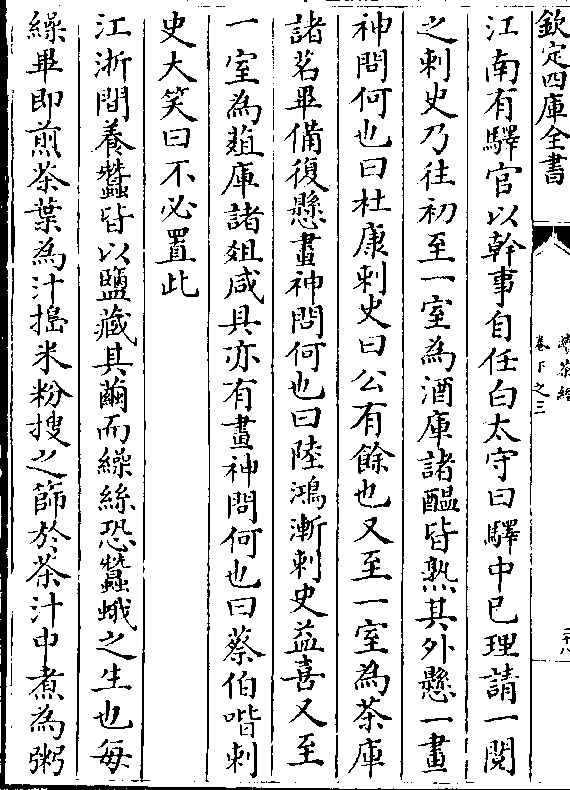 欽定四庫全書
續茶經
卷下之三
江南有驛官以幹事自任白太守曰驛中已理請一閱
之刺史乃往初至一室為酒庫諸醖皆熟其外懸一畫
神問何也曰杜康刺史曰公有餘也又至一室為茶庫
諸茗畢備復懸畫神問何也曰陸鴻漸刺史益喜又至
一室為葅庫諸俎咸具亦有畫神問何也曰蔡伯喈刺
史大笑曰不必置此
江浙間養蠶皆以鹽藏其繭而繰絲恐蠶蛾之生也每
繰畢即煎茶葉為汁搗米粉搜之篩於茶汁中煮為粥